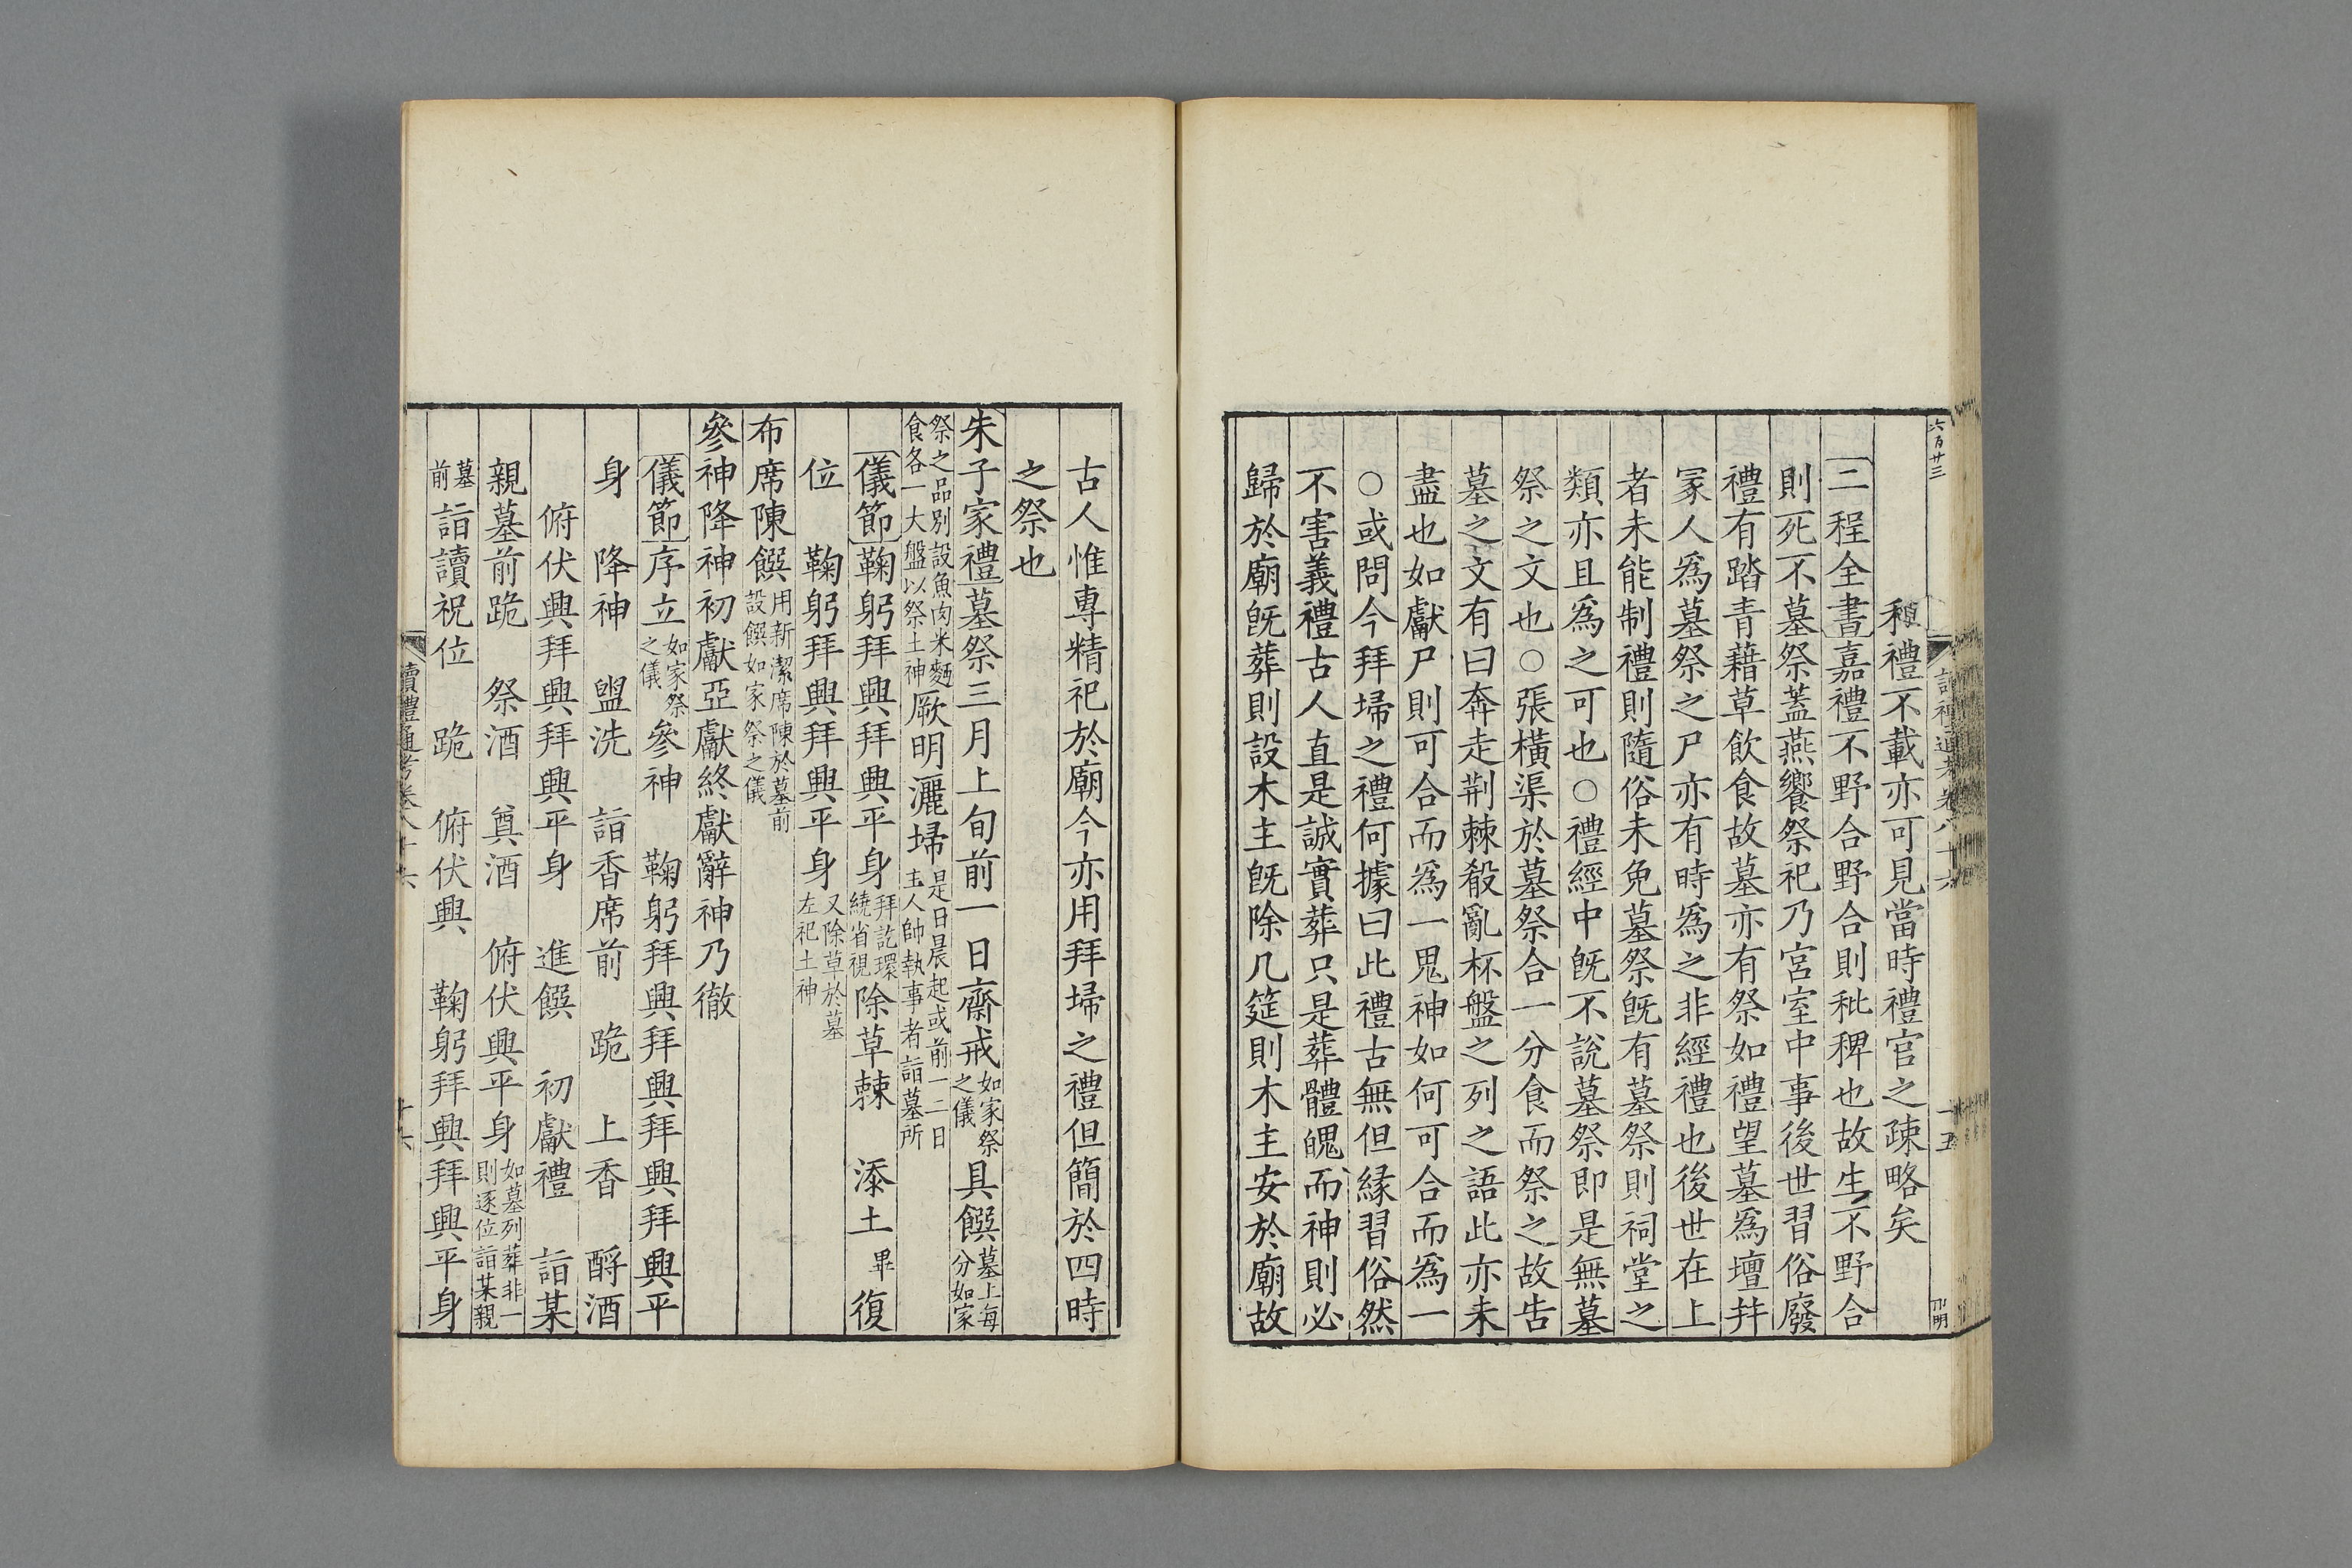 六百廿三
讀禮通考卷八十六
十五
𠃔明
穎禮不載亦可見當時禮官之疎略矣
二程全書嘉禮不野合野合則秕稗也故生不野合
則死不墓祭蓋燕饗祭祀乃宮室中事後世習俗廢
禮有踏青藉草飲食故墓亦有祭如禮望墓爲壇并
冢人爲墓祭之尸亦有時爲之非經禮也後世在上
者未能制禮則隨俗未免墓祭旣有墓祭則祠堂之
類亦且爲之可也○禮經中旣不說墓祭即是無墓
祭之文也○張橫渠於墓祭合一分食而祭之故告
墓之文有曰奔走荆棘殽亂杯盤之列之語此亦未
盡也如獻尸則可合而爲一鬼神如何可合而爲一
○或問今拜埽之禮何據曰此禮古無但緣習俗然
不害義禮古人直是誠實葬只是葬體魄而神則必
歸於廟旣葬則設木主旣除几筵則木主安於廟故
古人惟專精祀於廟今亦用拜埽之禮但簡於四時
之祭也
朱子家禮墓祭三月上旬前一日齋戒如家祭之儀具饌墓上每分如家
祭之品別設魚肉米麵食各一大盤以祭土神厥明灑埽是日晨起或前一二日主人帥執事者詣墓所
儀節鞠躬拜興拜興平身拜訖環繞省視除草棘　添土畢復
位　鞠躬拜興拜興平身又除草於墓左祀土神
布席陳饌用新潔席陳於墓前設饌如家祭之儀
參神降神初獻亞獻終獻辭神乃徹
儀節序立如家祭之儀參神　鞠躬拜興拜興拜興拜興平
身　降神　盥洗　詣香席前　跪　上香　酹酒
俯伏興拜興拜興平身　進饌　初獻禮　詣某
親墓前跪　祭酒　奠酒　俯伏興平身如墓列葬非一則逐位詣某親
墓前詣讀祝位　跪　俯伏興　鞠躬拜興拜興平身
讀禮通考卷八十六
十六